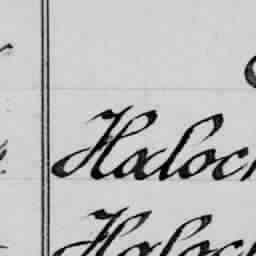 Haloch
Haloch